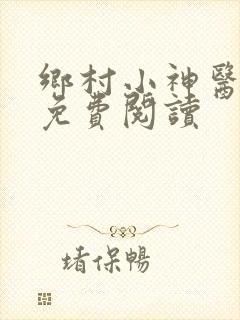 鄉村小神醫
免費閱讀
堵保暢